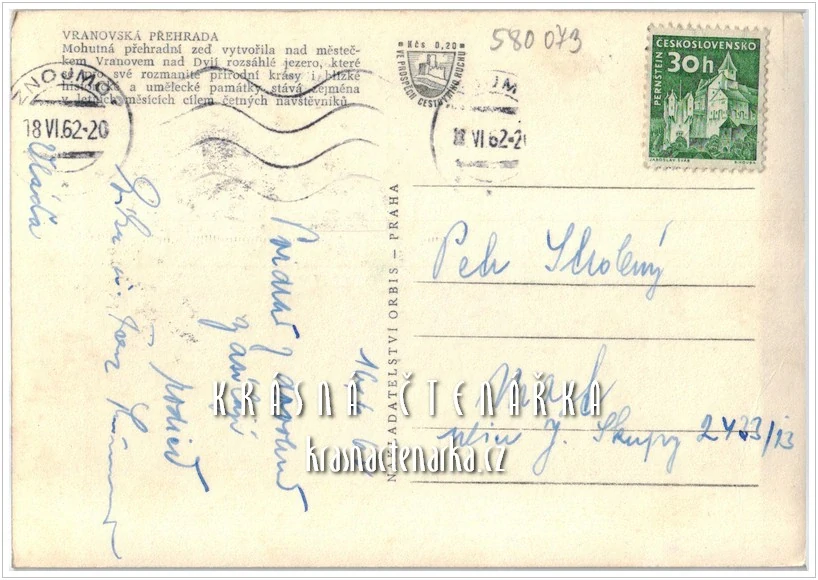 VRANOVSKÁ PŘEHRADA
Mohutná přehradní zeď vytvořila nad městeč-
kem Vranovem nad Dyjí rozsáhlé jezero, které
pro své rozmanité přírodní krásy i blízké
historické a umělecké památky stává zejména
v letních měsících cílem četných návštěvníků.
Kčs 0,20
VE PROSPĚCH CESTOVNÍHO RUCHU
580 073
ČESKOSLOVENSKO
30h
PERNŠTEJN
ZNOJMO
18 VI.62-20
VI 62-2
NAKLADATELSTVÍ ORBIS — PRAHA
Petr
ulice J. Skupy 2433/23
Pozdrav z dovolené
zasílají
rodiče
Vláďa
KRÁSNÁ ČTENÁŘKA
krasnactenarka.cz